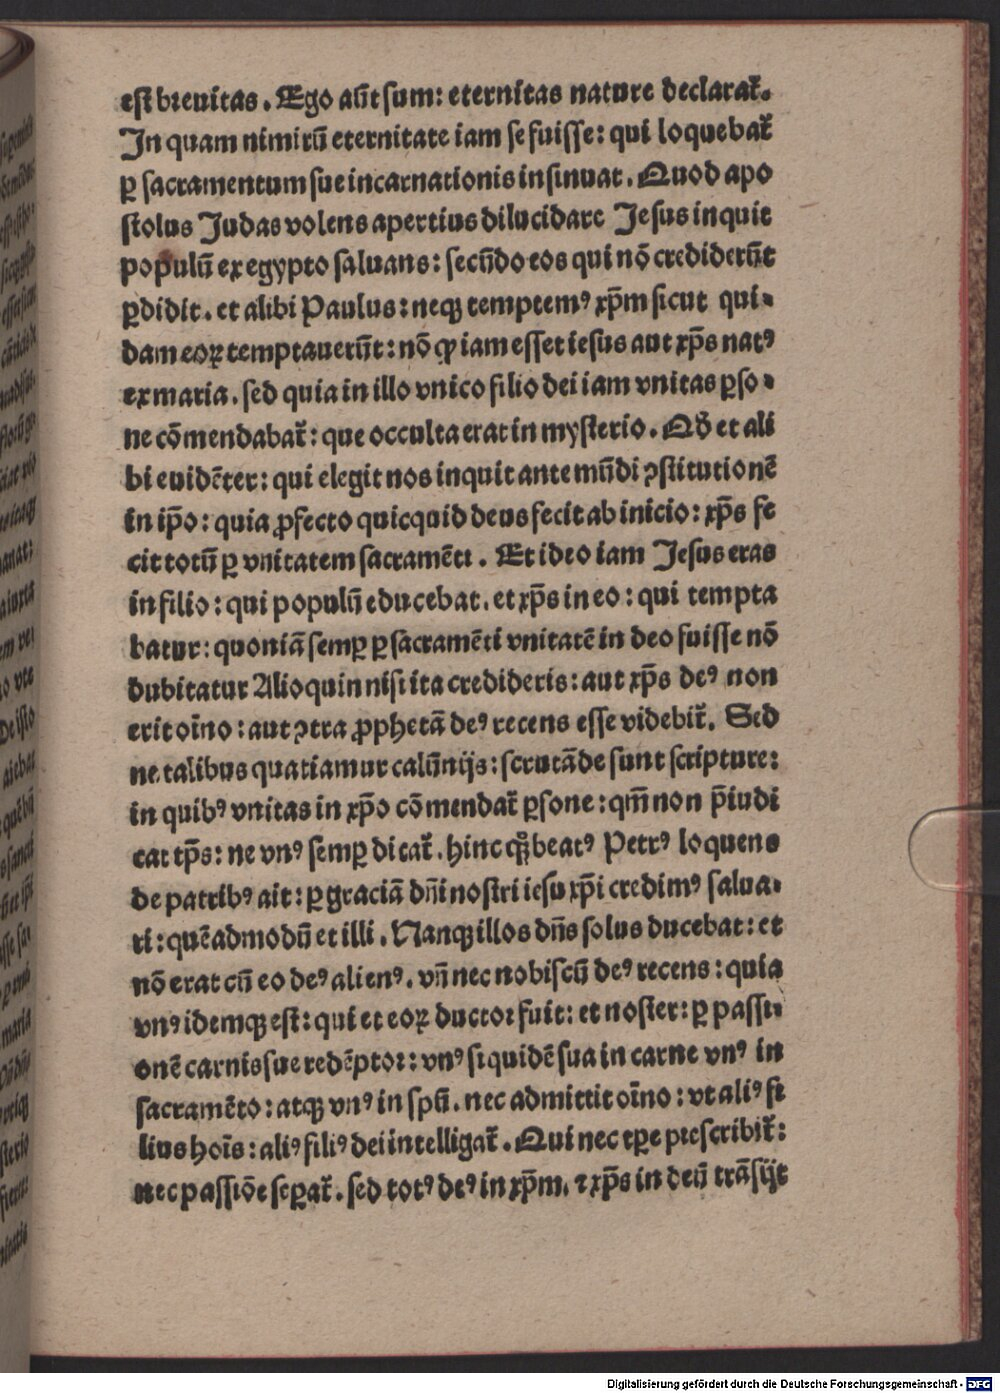 est breuitas. Ego aūt sum: eternitas nature declarat̄.
In quam nimirū eternitate iam se fuisse: qui loquebat̄
ꝑ sacramentum sue incarnationis insinuat. Quod apo
stolus Judas volens apertius dilucidare Jesus inquit
populū ex egypto saluans: secūdo eos qui nō crediderūt
ꝑdidit. et alibi Paulus: neqꝫ temptemꝰ xp̄m sicut qui⸗
dam eoꝝ temptauerūt: nō ꝙ iam esset iesus aut xp̄s natꝰ
ex maria. sed quia in illo vnico filio dei iam vnitas ꝑso⸗
ne cōmendabat̄: que occulta erat in mysterio. Qd̄ et ali
bi euidēter: qui elegit nos inquit ante mūdi ꝯstitutionē
in ip̄o: quia ꝓfecto quicquid deus fecit ab inicio: xp̄s fe
cit totū ꝑ vnitatem sacramēti. Et ideo iam Jesus eras
in filio: qui populū educebat. et xp̄s in eo: qui tempta
batur: quoniā semꝑ ꝑ sacramēti vnitatē in deo fuisse nō
dubitatur Alioquin nisi ita credideris: aut xp̄s deꝰ non
erit oīno: aut ꝯtra ꝓphetā deꝰ recens esse videbit̄. Sed
ne talibus quatiamur calūnijs: scrutāde sunt scripture:
in quibꝰ vnitas in xp̄o cōmendat̄ ꝑsone: qm̄ non p̄iudi
cat tp̄s: ne vnꝰ semꝑ dicat̄. hinc qꝫ beatꝰ Petrꝰ loquens
de patribꝰ ait: ꝑ graciā dn̄i nostri iesu xp̄i credimꝰ salua⸗
ri: quēadmodū et illi. Nanqꝫ illos dn̄s solus ducebat: et
nō erat cū eo deꝰ alienꝰ. vn̄ nec nobiscū deꝰ recens: quia
vnꝰ idemqꝫ est: qui et eoꝝ ductor fuit: et noster: ꝑ passi⸗
onē carnis sue redēptor: vnꝰ siquidē sua in carne vnꝰ in
sacramēto: atqꝫ vnꝰ in spū. nec admittit oīno: vt aliꝰ fi
lius hoīs: aliꝰ filiꝰ dei intelligat̄. Qui nec tꝑe prescribit̄:
nec passiōe seꝑat̄. sed totꝰ deꝰ in xp̄m. ⁊ xp̄s in deū trāsijt
Digitalisierung gefördert durch die Deutsche Forschungsgemeinschaft - DFG